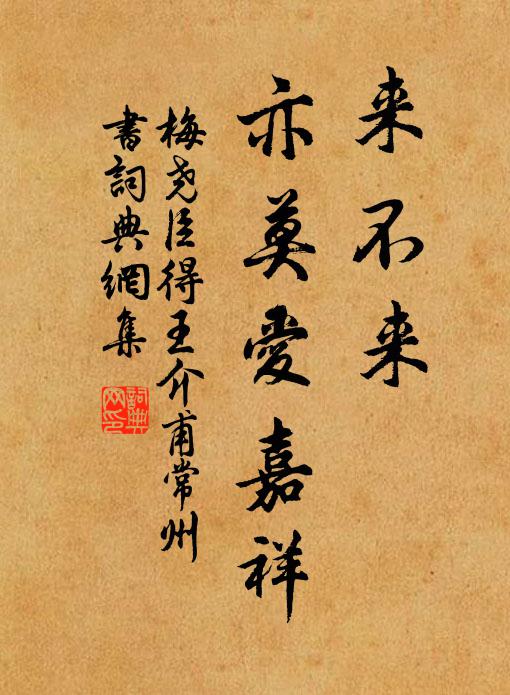 来不来
亦莫爱嘉祥
梅尧臣得王介甫常州
書詞典網集
詞典网印